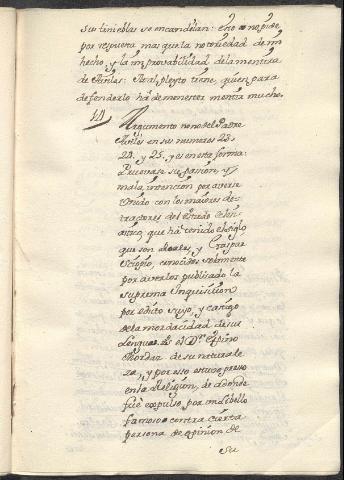 sus tinieblas se encandelan: Eño no pide
por respuesta mas que la notoriedad de un
hecho, y la improvabilidad de la mentira
de Aviles. Mal pleyto tiene, quien para
defenderlo há de menester mentir mucho.
Argumento nono del Padre
Aviles en sus numeros 23.
24. y 25. y es en esta forma:
Pruevase su passion, y
mala intencion por averse
Unido con los maiores de-
tractores del Estado Eclesi-
astico, que há tenido el siglo,
que son Morales, y Gaspar
Scipio, conocidos solamente
por averlos publicado la
suprema Inquisicion
por edicto suyo, y castigo
de la mordacidad de sus
lenguas. Es el Dr. Espino
Mordaz de su naturale
za, y por esso estuvo preso
en la Religion, de adonde
fué expulso por un libello
famoso contra cierta
persona de opinion de
su